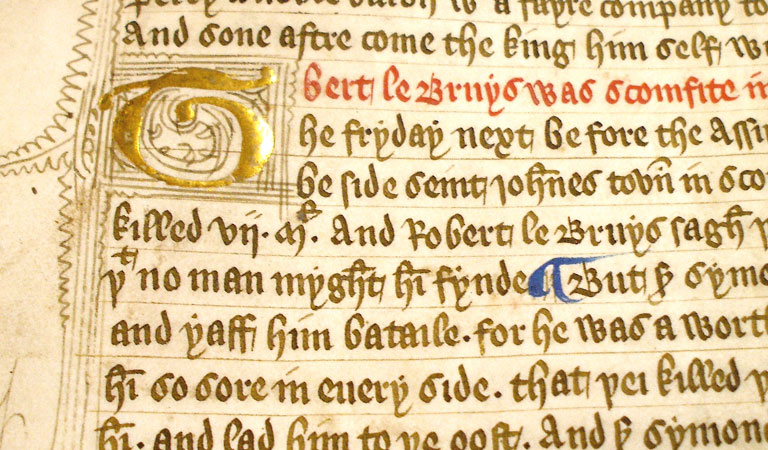 a fayre company to
And sone aftre come the king him self
bert le Bruys was scomfite in
The fryday next be fore the Assu
be side seint Joh̄nes toun̄ in sco
killed vij. Mˡ. And Robert le Bruys sagh̄
þᵗ no man mygh̄t hī fynde ¶ But sʳ syme
and yaff him bataile. for he was a worth
hī so sore in euery side. that þei killed
hī. and lad him to þe oost. And sʳ symon